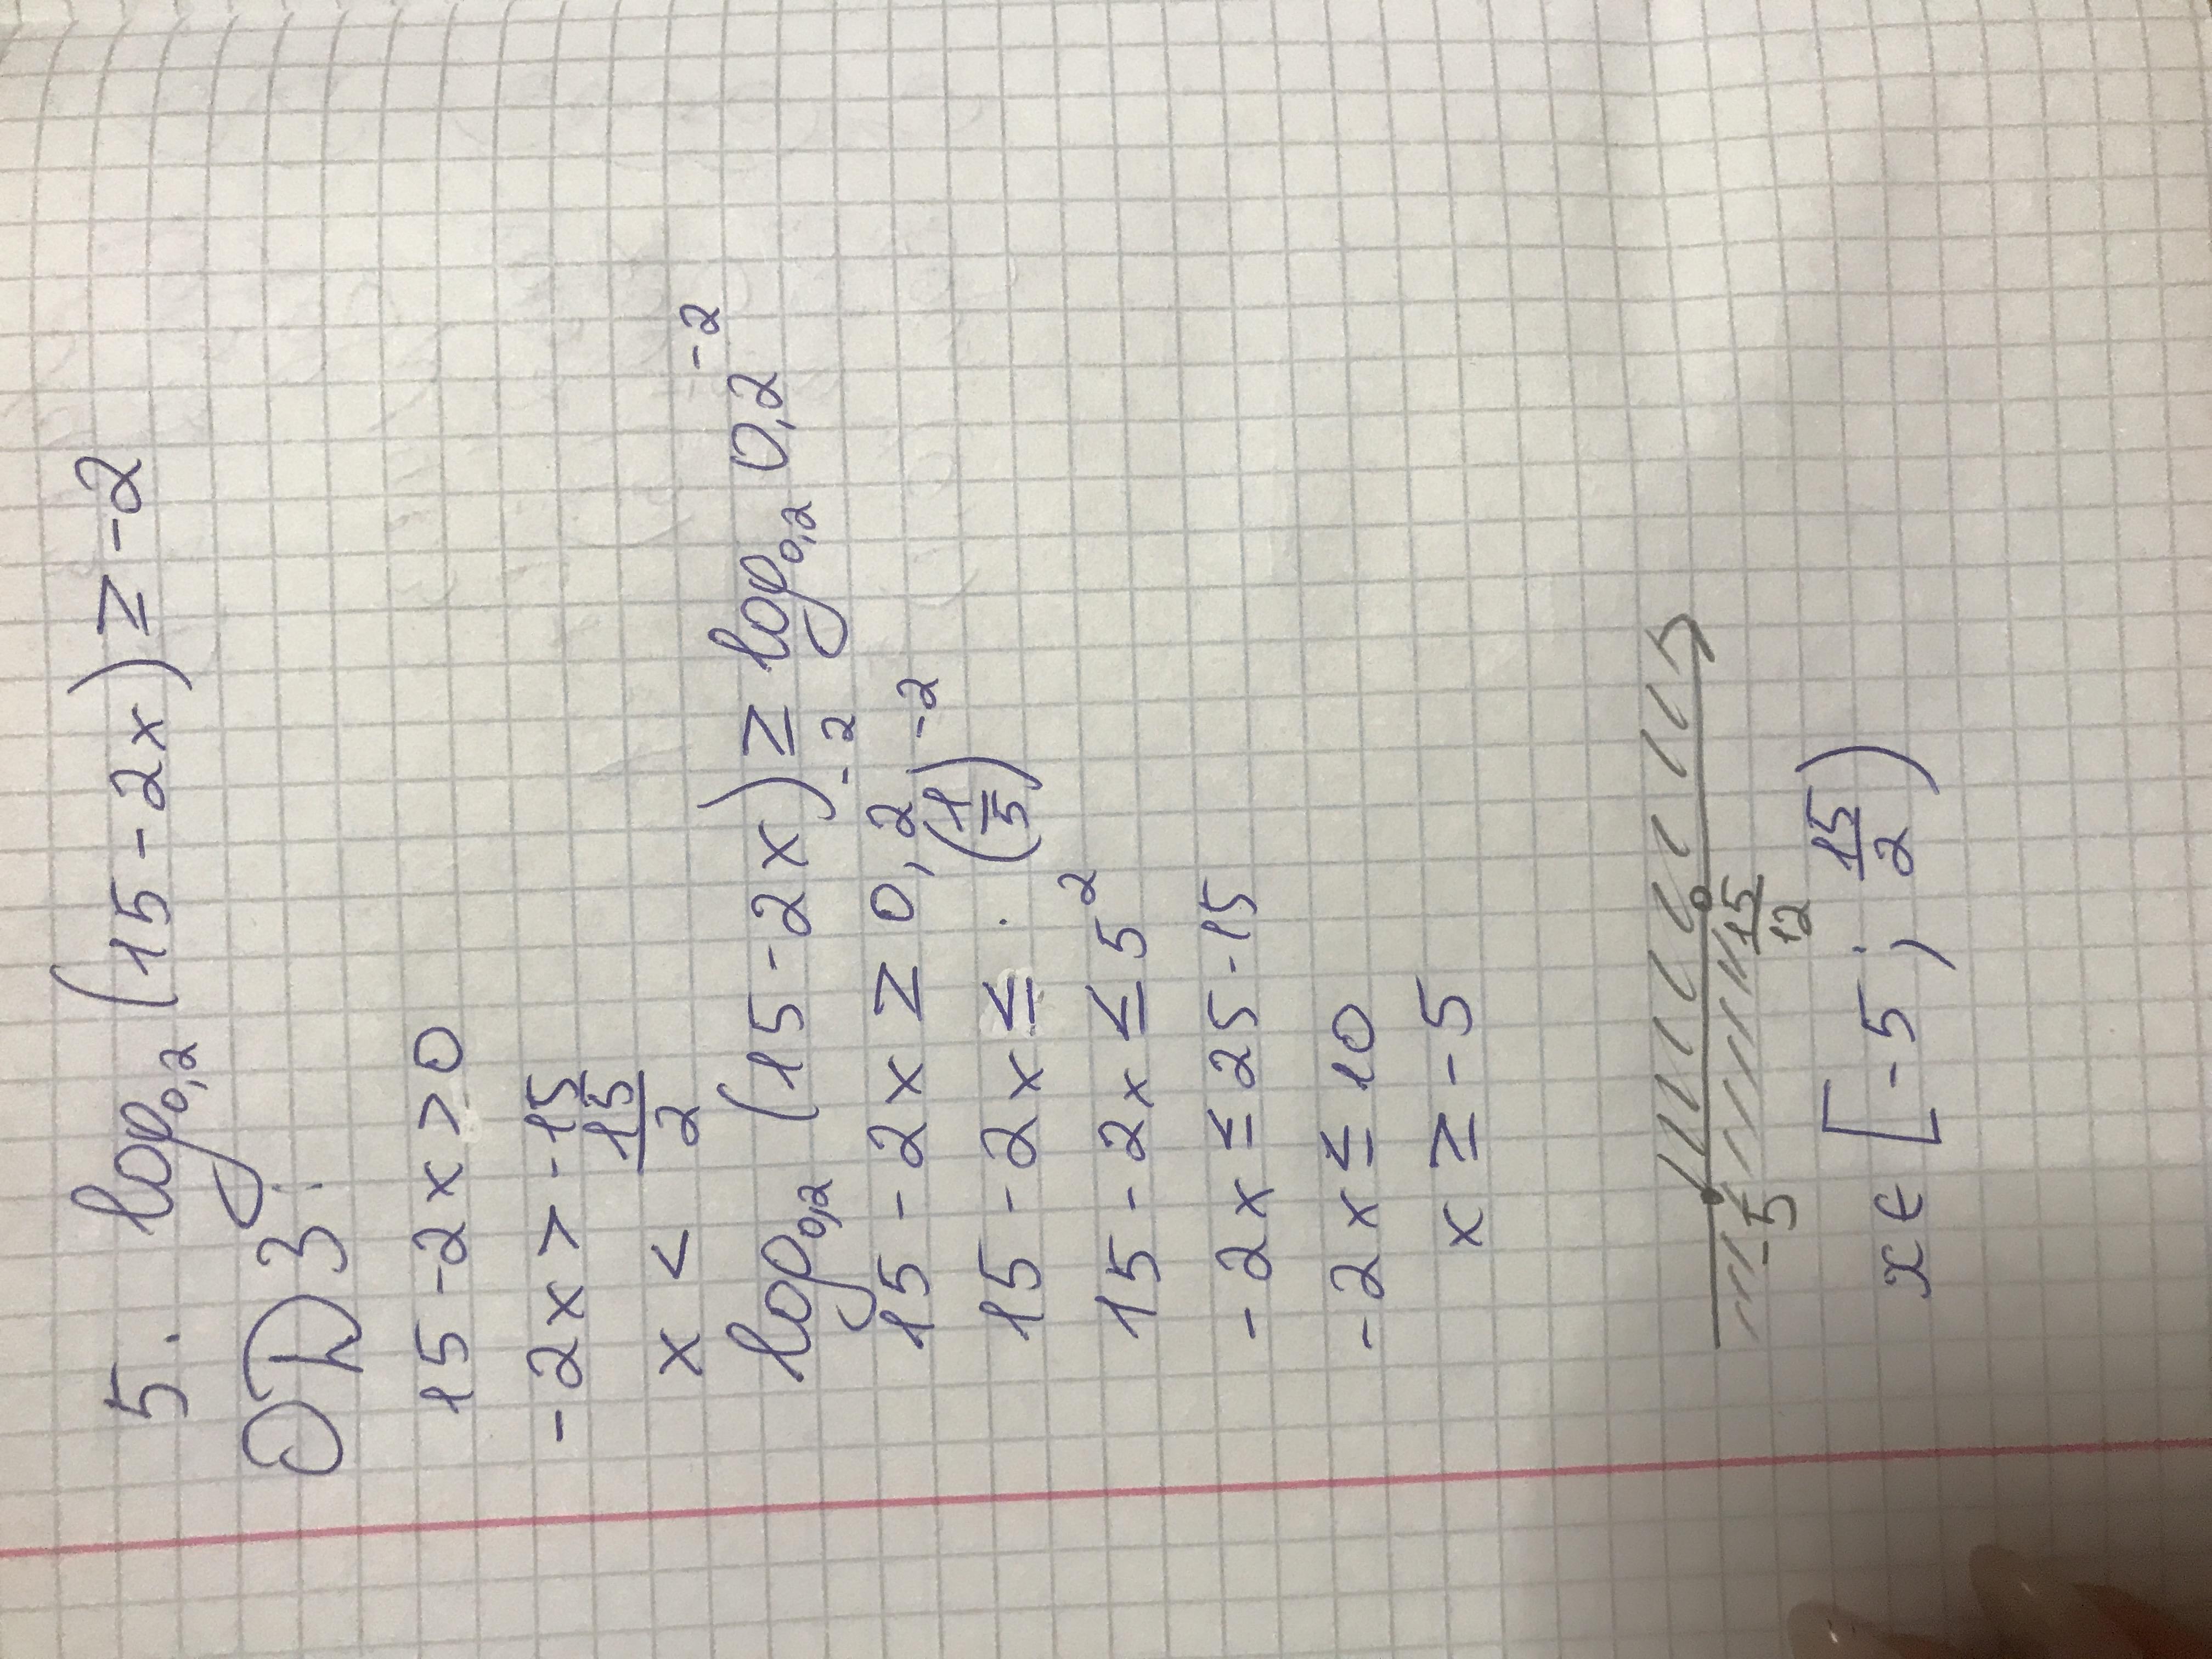 5. log₀,₂(15-2x) ≥ -2
ОДЗ:
15-2x>0
-2x>-15
x < 15/2
log₀,₂ (15-2x) ≥ log₀,₂ 0,2⁻²
15-2x ≥ 0,2⁻²
15-2x ≤ (1/5)⁻²
15-2x ≤ 5²
-2x ≤ 25-15
-2x ≤ 10
x ≥ -5
-5 15/12
x ∈ [-5; 15/2)